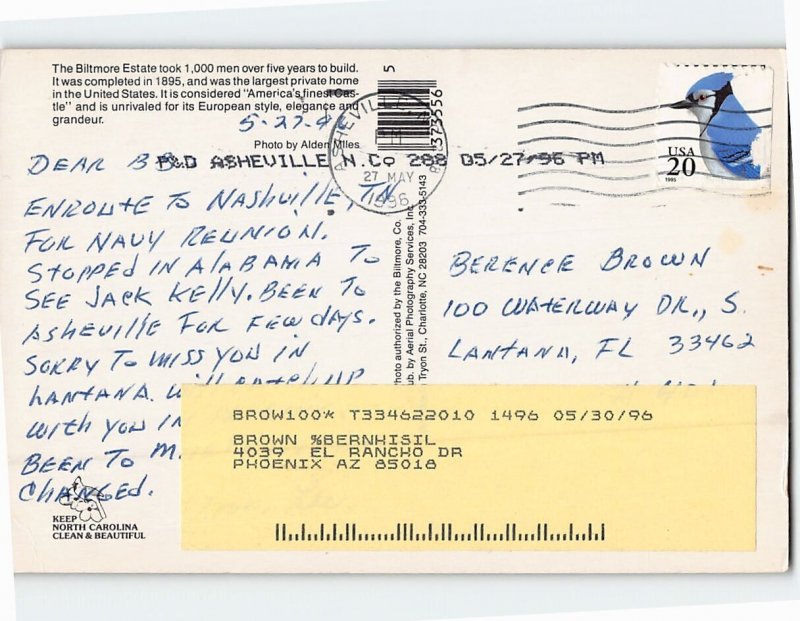 The Biltmore Estate took 1,000 men over five years to build.
It was completed in 1895, and was the largest private home
in the United States. It is considered "America's finest Cas-
tle" and is unrivaled for its European style, elegance and
grandeur.
5-27-96
Photo by Alden Miles
5
373556
ASHEVILLE
27 MAY
1996
P&D ASHEVILLE N.Co 288 05/27/96 PM
USA
20
1995
DEAR B
ENROUTE TO NASHVILLE, TN
FOR NAVY REUNION.
STOPPED IN ALABAMA TO
SEE JACK KELLY. BEEN TO
ASHEVILLE FOR FEW DAYS.
SORRY TO MISS YOU IN
LANTANA. WILL CATCH UP
WITH YOU IN
BEEN TO M
CHANGED.
Photo authorized by the Biltmore, Co.
ub. by Aerial Photography Services, Inc.
Tryon St., Charlotte, NC 28203 704-333-5143
BERENCE BROWN
100 WATERWAY DR., S.
LANTANA, FL 33462
BROW100* T334622010 1496 05/30/96
BROWN %BERNHISIL
4039 EL RANCHO DR
PHOENIX AZ 85018
KEEP
NORTH CAROLINA
CLEAN & BEAUTIFUL